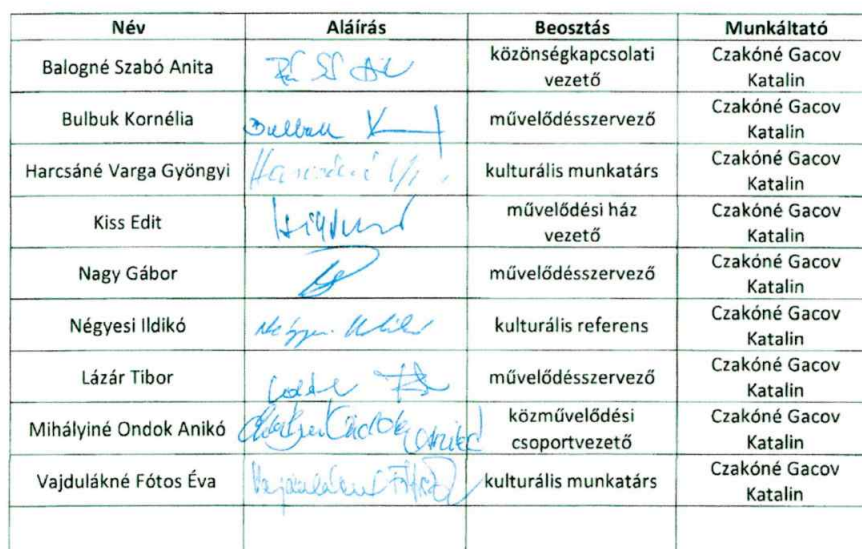 Név Aláírás Beosztás Munkáltató
Balogné Szabó Anita közönségkapcsolati vezető Czakóné Gacov Katalin
Bulbuk Kornélia Bulbuk K művelődésszervező Czakóné Gacov Katalin
Harcsáné Varga Gyöngyi Harcsáné kulturális munkatárs Czakóné Gacov Katalin
Kiss Edit művelődési ház vezető Czakóné Gacov Katalin
Nagy Gábor művelődésszervező Czakóné Gacov Katalin
Négyesi Ildikó kulturális referens Czakóné Gacov Katalin
Lázár Tibor művelődésszervező Czakóné Gacov Katalin
Mihályiné Ondok Anikó közművelődési csoportvezető Czakóné Gacov Katalin
Vajdulákné Fótos Éva kulturális munkatárs Czakóné Gacov Katalin